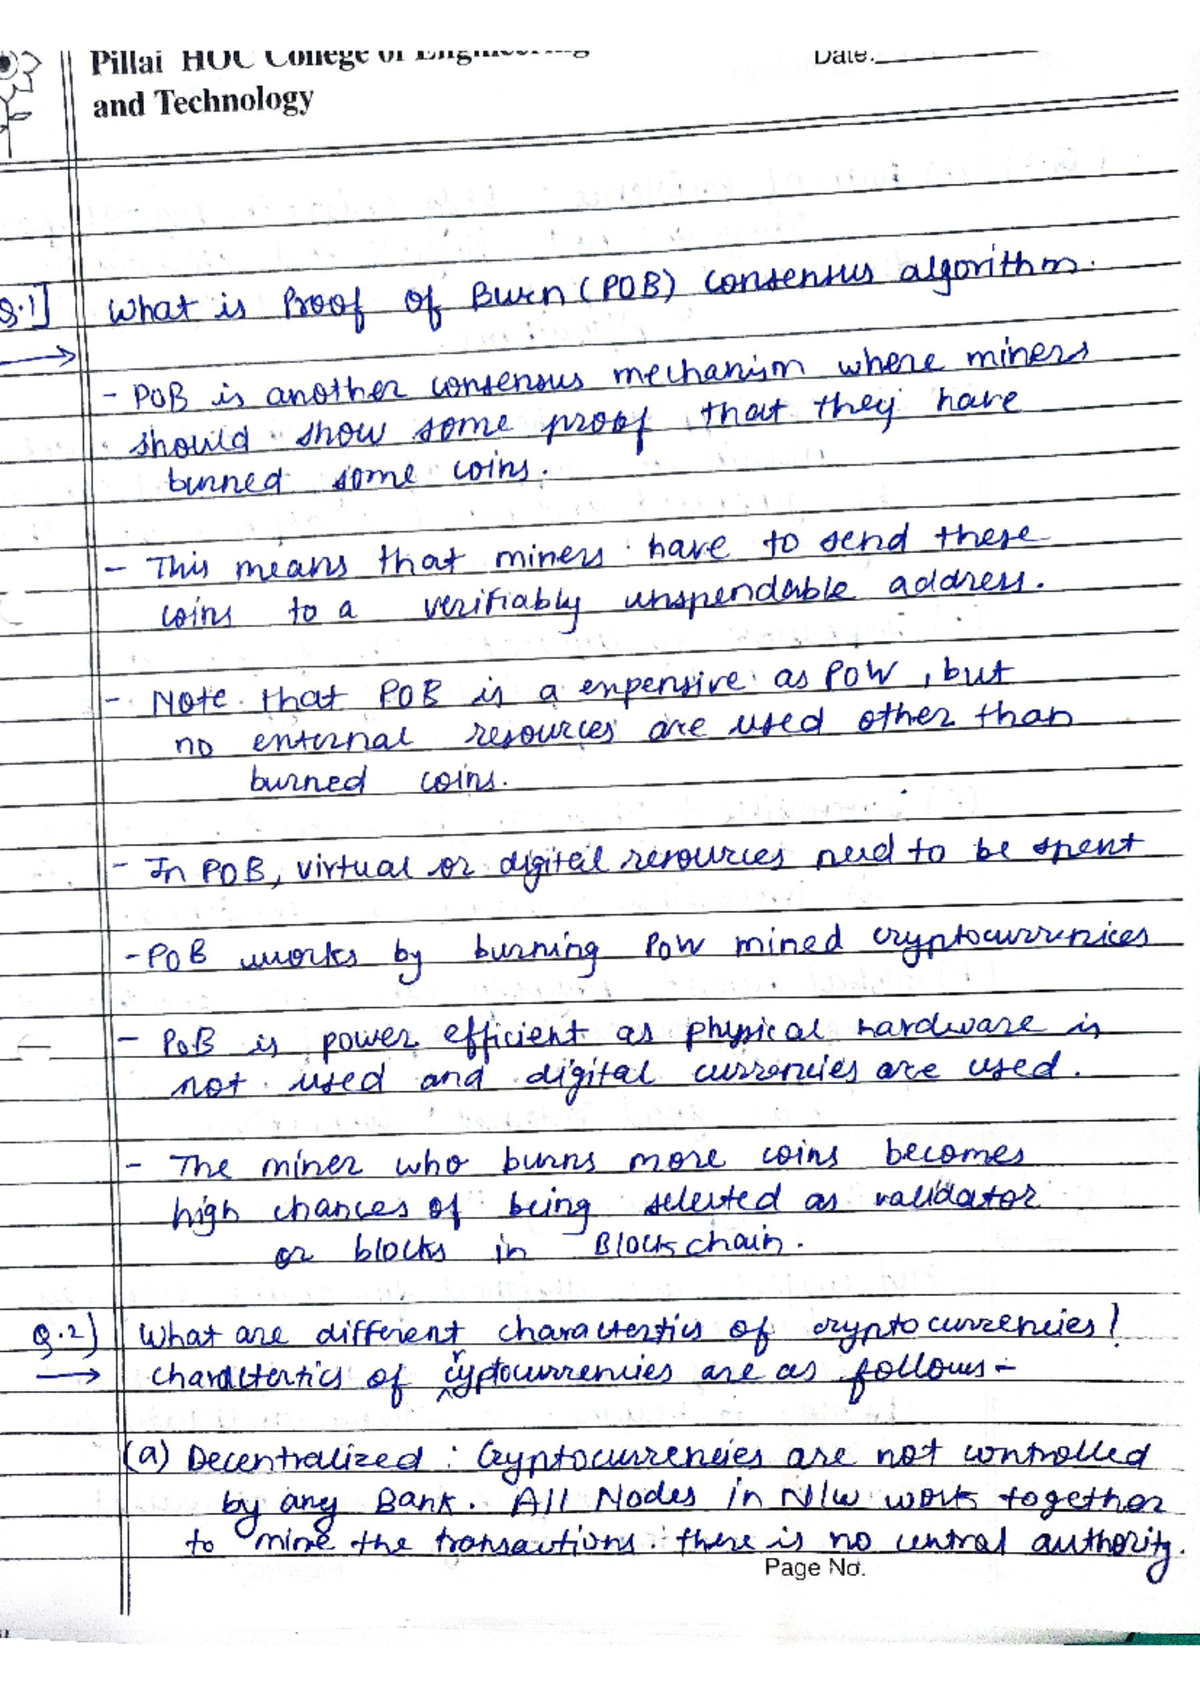 Pillai HOC College of Engineering
Date:
and Technology
Q.1] What is Proof of Burn (POB) consensus algorithm.
- POB is another consensus mechanism where miners
should show some proof that they have
burned some coins.
- This means that miners have to send these
coins to a verifiably unspendable address.
- Note that POB is a expensive as POW, but
no external resources are used other than
burned coins.
- In POB, virtual or digital resources need to be spent
- POB works by burning POW mined cryptocurrenices
- POB is power efficient as physical hardware is
not used and digital currencies are used.
- The miner who burns more coins becomes
high chances of being selected as validator
or blocks in Blockchain.
Q.2) What are different charactertics of cryptocurrencies?
→ charactertics of cryptocurrencies are as follows-
(a) Decentralized : Cryptocurrencies are not controlled
by any Bank. All Nodes in N/w work together
to mine the transactions. there is no central authority.
Page No.